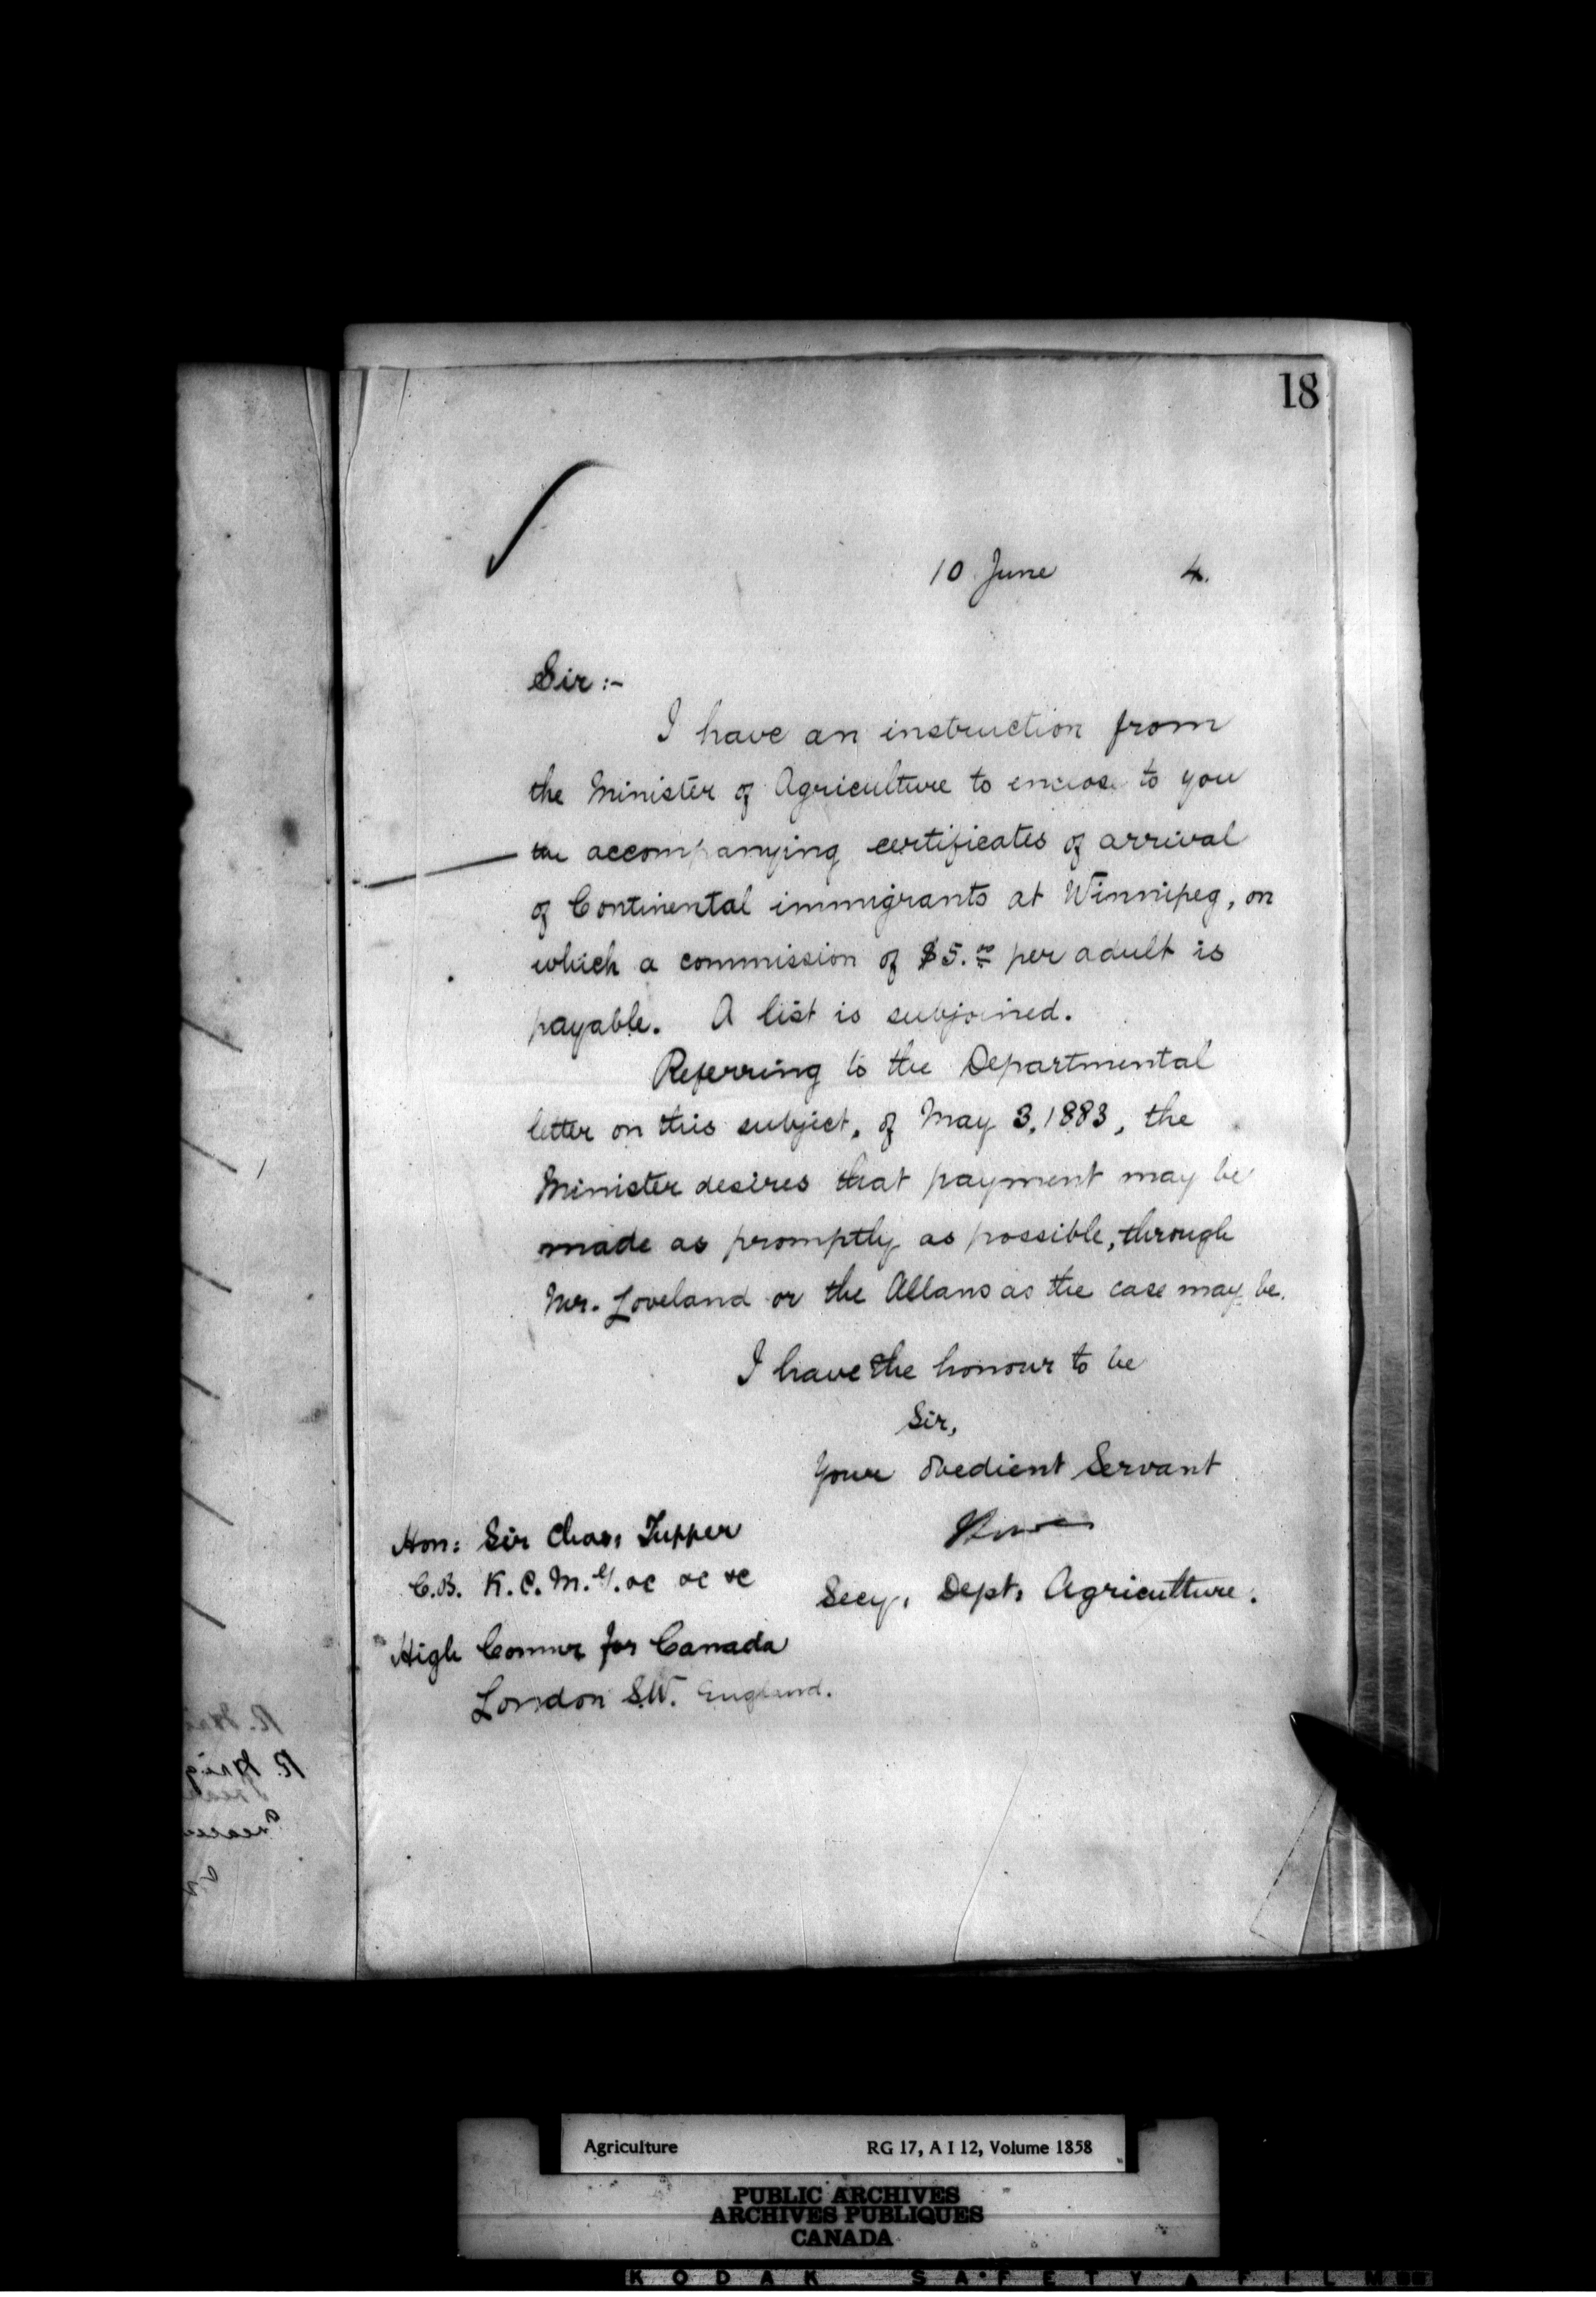 18
10 June 4.
Sir:-
I have an instruction from
the Minister of Agriculture to enclose to you
the accompanying certificates of arrival
of Continental immigrants at Winnipeg, on
which a commission of $5.00 per adult is
payable. A list is subjoined.
Referring to the Departmental
letter on this subject, of May 3, 1883, the
Minister desires that payment may be
made as promptly as possible, through
Mr. Loveland or the Allans as the case may be.
I have the honour to be
Sir,
Your obedient Servant
Secy, Dept, Agriculture.
Hon: Sir Chas, Tupper
C.B. K.C.M.G. &c &c &c
High Commr for Canada
London S.W. England.
Agriculture RG 17, A I 12, Volume 1858
PUBLIC ARCHIVES
ARCHIVES PUBLIQUES
CANADA
KODAK SAFETY FILM